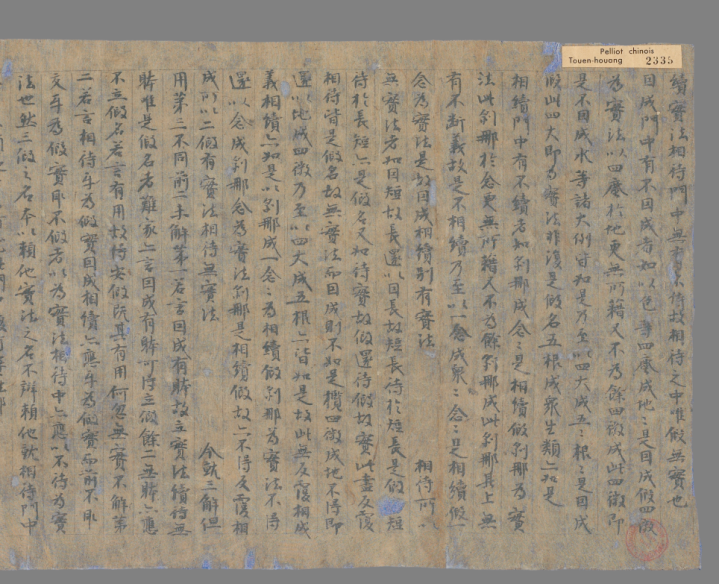 Pelliot chinois
Touen-houang 2335
續實法相待門中無有不待故相待之中唯假無實也
因成門中有不因成者如以色等四塵成地地是因成假四微
為實法以四塵於地更無所藉又不為餘四微成此四微即
是不因成水等諸大例皆如是乃至以四大成五根根是因成
假此四大即為實法非復是假名五根成眾生類亦如是
相續門中有不續者如剎那成念念是相續假剎那為實
法此剎那於念更無所藉又不為餘剎那成此剎那其上無
有不斷義故是不相續乃至以一念成眾念念是相續假一
念為實法是故因成相續別有實法 相待所以
無實法者如因短故長還以因長故短長待於短長是假短
待於長短亦是假名又如待實故假還待假故實此盡反覆
相待皆是假名故無實法而因成則不如是攬四微成地不得即
還以地成四微乃至以四大成五根亦皆如是故此無反覆相成
義相續亦如是以剎那成一念念為相續假剎那為實法不得
還以念成剎那念為實法剎那是相續假故亦不得反覆相
成所以二假有實法相待無實法 今就三解但
用第三不同前二未解第一若言因成有時故立實法續待無
時唯是假名者難家亦言因成有時可得立假餘二無時亦應
不立假名若言有用故得安假既具有用何忽無實不解第
二若言相待平為假實因成相續亦應平為假實而前不即
文平為假實即不假者以為實法相待中亦應以不待為實
法也然三假之名本以賴他實法之名不辨賴他就相待門中